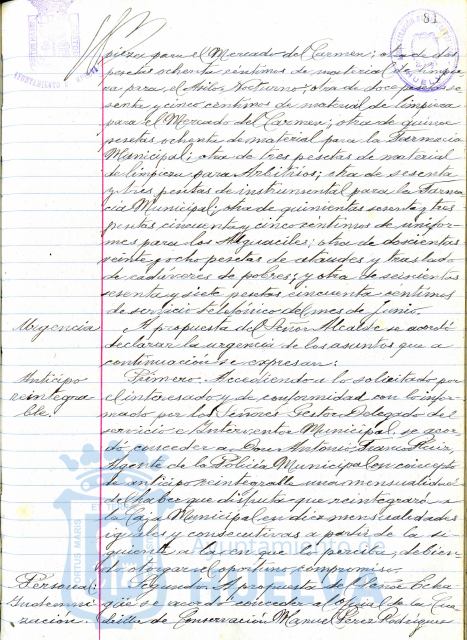 81
pieza para el Mercado del Carmen; otra de dos
pesetas ochenta céntimos de material de limpie
za para el Asilo Nocturno; otra de doce pesetas se
senta y cinco céntimos de material de limpieza
para el Mercado del Carmen; otra de quince
pesetas ochenta de material para la Farmacia
Municipal; otra de tres pesetas de material
de limpieza para Arbitrios; otra de sesenta
y tres pesetas de instrumental para la Farma
cia Municipal; otra de quinientas sesenta y tres
pesetas cincuenta y cinco céntimos de unifor-
mes para los Alguaciles; otra de doscientas
veinte y ocho pesetas de ataudes y traslado
de cadáveres de pobres; y otra de seiscientas
sesenta y siete pesetas cincuenta céntimos
de servicio telefónico del mes de Junio.
Urgencia
A propuesta del Señor Alcalde se acordó
declarar la urgencia de los asuntos que a
continuación se expresan:
Anticipo
reintegra
ble.
Primero. Accediendo a lo solicitado por
el interesado y de conformidad con lo infor-
mado por los Señores Gestor Delegado del
servicio e Interventor Municipal, se acor
dó conceder a Don Antonio Ruiz,
Agente de la Policía Municipal, en concepto
de anticipo reintegrable una mensualidad
de haber que disfruta que reintegrará a
la Caja Municipal en diez mensualidades
iguales y consecutivas a partir de la si-
guiente a la en que lo perciba, debien
do otorgar el oportuno compromiso.
Personal:
Indemni
zación.
Segundo. A propuesta del Señor
que se acordó conceder al Oficial de la Cua
drilla de Conservación Manuel Pérez Rodríguez
Ayuntamiento de
HUELVA
PORTUS MARIS
AYUNTAMIENTO DE HUELVA
HUELVA